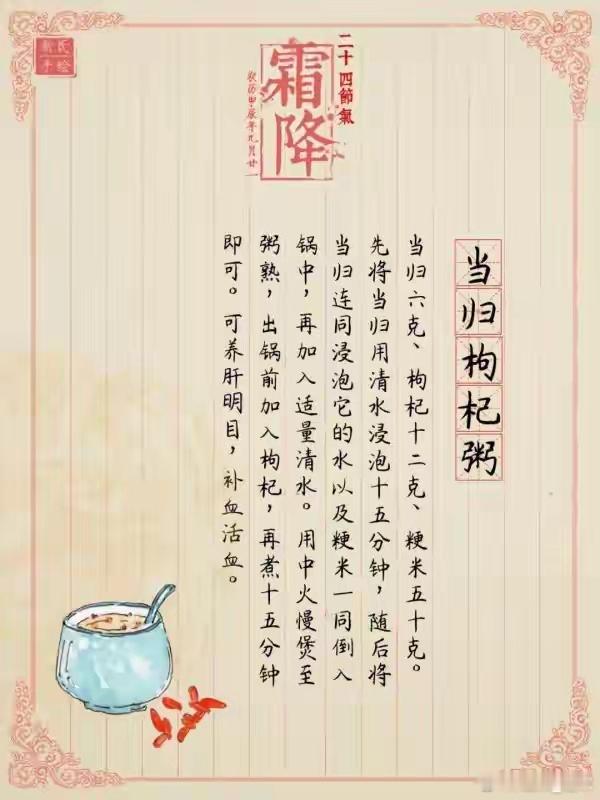 二十四節氣
霜降
农历甲辰年九月廿一
当归枸杞粥
当归六克、枸杞十二克、粳米五十克。
先将当归用清水浸泡十五分钟，随后将
当归连同浸泡它的水以及粳米一同倒入
锅中，再加入适量清水。用中火慢煲至
粥熟，出锅前加入枸杞，再煮十五分钟
即可。可养肝明目，补血活血。